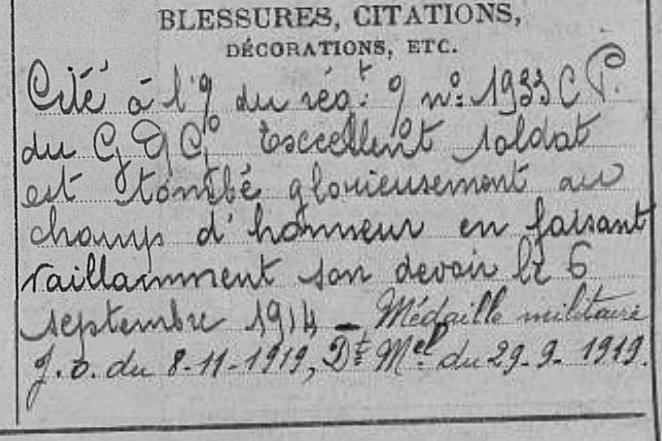 BLESSURES, CITATIONS,
DÉCORATIONS, ETC.
Cité à l'O du régt O no 1933 C P.
du G Q G Excellent soldat
est tombé glorieusement au
champ d'honneur en faisant
vaillamment son devoir le 6
septembre 1914 – Médaille militaire
J.O. du 8-11-1919, Dt Mel du 29-9-1919.